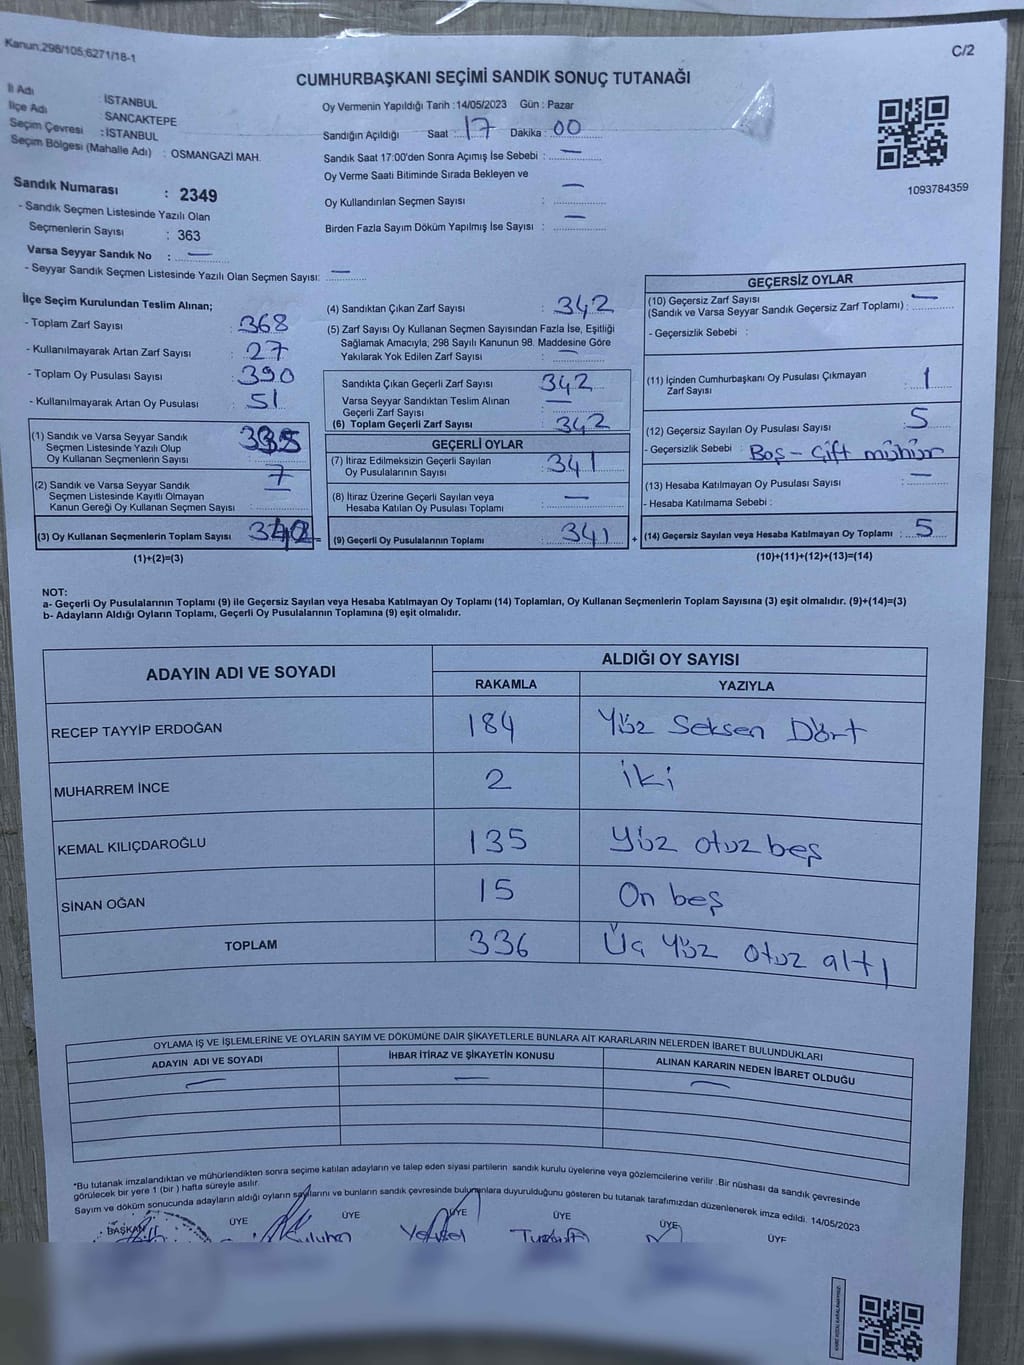 Kanun:298/105;6271/18-1
C/2
CUMHURBAŞKANI SEÇİMİ SANDIK SONUÇ TUTANAĞI
İl Adı : İSTANBUL
İlçe Adı : SANCAKTEPE
Seçim Çevresi : İSTANBUL
Seçim Bölgesi (Mahalle Adı) : OSMANGAZİ MAH.
Sandık Numarası : 2349
- Sandık Seçmen Listesinde Yazılı Olan
Seçmenlerin Sayısı : 363
Varsa Seyyar Sandık No : —
- Seyyar Sandık Seçmen Listesinde Yazılı Olan Seçmen Sayısı: —
Oy Vermenin Yapıldığı Tarih :14/05/2023 Gün : Pazar
Sandığın Açıldığı Saat : 17 Dakika : 00
Sandık Saat 17:00'den Sonra Açımış İse Sebebi : —
Oy Verme Saati Bitiminde Sırada Bekleyen ve —
Oy Kullandırılan Seçmen Sayısı :
Birden Fazla Sayım Döküm Yapılmış İse Sayısı : —
1093784359
İlçe Seçim Kurulundan Teslim Alınan;
- Toplam Zarf Sayısı : 368
- Kullanılmayarak Artan Zarf Sayısı : 27
- Toplam Oy Pusulası Sayısı : 390
- Kullanılmayarak Artan Oy Pusulası : 51
(1) Sandık ve Varsa Seyyar Sandık
Seçmen Listesinde Yazılı Olup
Oy Kullanan Seçmenlerin Sayısı : 335
(2) Sandık ve Varsa Seyyar Sandık
Seçmen Listesinde Kayıtlı Olmayan
Kanun Gereği Oy Kullanan Seçmen Sayısı : 7
(3) Oy Kullanan Seçmenlerin Toplam Sayısı : 342 =
(1)+(2)=(3)
(4) Sandıktan Çıkan Zarf Sayısı : 342
(5) Zarf Sayısı Oy Kullanan Seçmen Sayısından Fazla İse, Eşitliği
Sağlamak Amacıyla, 298 Sayılı Kanunun 98. Maddesine Göre
Yakılarak Yok Edilen Zarf Sayısı : —
Sandıkta Çıkan Geçerli Zarf Sayısı : 342
Varsa Seyyar Sandıktan Teslim Alınan
Geçerli Zarf Sayısı : —
(6) Toplam Geçerli Zarf Sayısı : 342
GEÇERLİ OYLAR
(7) İtiraz Edilmeksizin Geçerli Sayılan
Oy Pusulalarının Sayısı : 341
(8) İtiraz Üzerine Geçerli Sayılan veya
Hesaba Katılan Oy Pusulası Toplamı : —
(9) Geçerli Oy Pusulalarının Toplamı : 341 +
GEÇERSİZ OYLAR
(10) Geçersiz Zarf Sayısı
(Sandık ve Varsa Seyyar Sandık Geçersiz Zarf Toplamı) : —
- Geçersizlik Sebebi :
(11) İçinden Cumhurbaşkanı Oy Pusulası Çıkmayan
Zarf Sayısı : 1
(12) Geçersiz Sayılan Oy Pusulası Sayısı : 5
- Geçersizlik Sebebi : Boş - Çift mühür
(13) Hesaba Katılmayan Oy Pusulası Sayısı : —
- Hesaba Katılmama Sebebi :
(14) Geçersiz Sayılan veya Hesaba Katılmayan Oy Toplamı : 5
(10)+(11)+(12)+(13)=(14)
NOT:
a- Geçerli Oy Pusulalarının Toplamı (9) ile Geçersiz Sayılan veya Hesaba Katılmayan Oy Toplamı (14) Toplamları, Oy Kullanan Seçmenlerin Toplam Sayısına (3) eşit olmalıdır. (9)+(14)=(3)
b- Adayların Aldığı Oyların Toplamı, Geçerli Oy Pusulalarının Toplamına (9) eşit olmalıdır.
ADAYIN ADI VE SOYADI ALDIĞI OY SAYISI
RAKAMLA YAZIYLA
RECEP TAYYİP ERDOĞAN 184 Yüz Seksen Dört
MUHARREM İNCE 2 iki
KEMAL KILIÇDAROĞLU 135 Yüz otuz beş
SİNAN OĞAN 15 On beş
TOPLAM 336 Üç Yüz otuz altı
OYLAMA İŞ VE İŞLEMLERİNE VE OYLARIN SAYIM VE DÖKÜMÜNE DAİR ŞİKAYETLERLE BUNLARA AİT KARARLARIN NELERDEN İBARET BULUNDUKLARI
ADAYIN ADI VE SOYADI İHBAR İTİRAZ VE ŞİKAYETİN KONUSU ALINAN KARARIN NEDEN İBARET OLDUĞU
— — —
*Bu tutanak imzalandıktan ve mühürlendikten sonra seçime katılan adayların ve talep eden siyasi partilerin sandık kurulu üyelerine veya gözlemcilerine verilir .Bir nüshası da sandık çevresinde
görülecek bir yere 1 (bir ) hafta süreyle asılır.
Sayım ve döküm sonucunda adayların aldığı oyların sayılarını ve bunların sandık çevresinde bulunanlara duyurulduğunu gösteren bu tutanak tarafımızdan düzenlenerek imza edildi. 14/05/2023
BAŞKAN ÜYE ÜYE ÜYE ÜYE ÜYE ÜYE